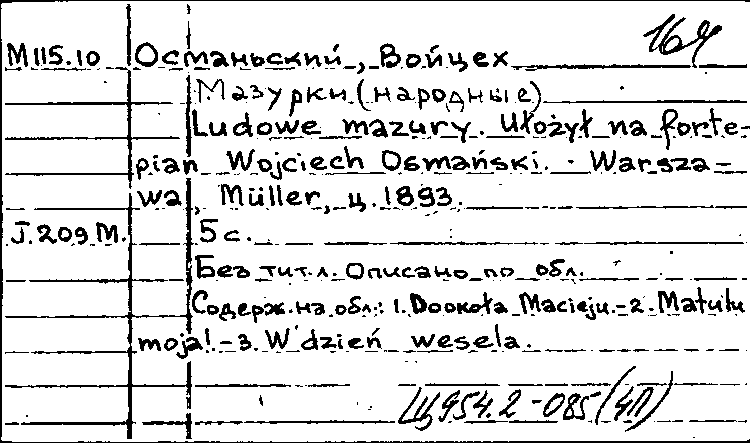 164
М115.10 Османьский, Войцех
Мазурки (народные)
Ludowe mazury. Ułożył na forte-
pian Wojciech Osmański. - Warsza-
wa, Müller, ц. 1893.
J.209 М. 5 с.
Без тит.л. Описано по обл.
Содерж. на обл.: 1. Dookoła Macieju.-2. Matulu
moja!-3. W dzień wesela.
Ц954.2-085(4П)